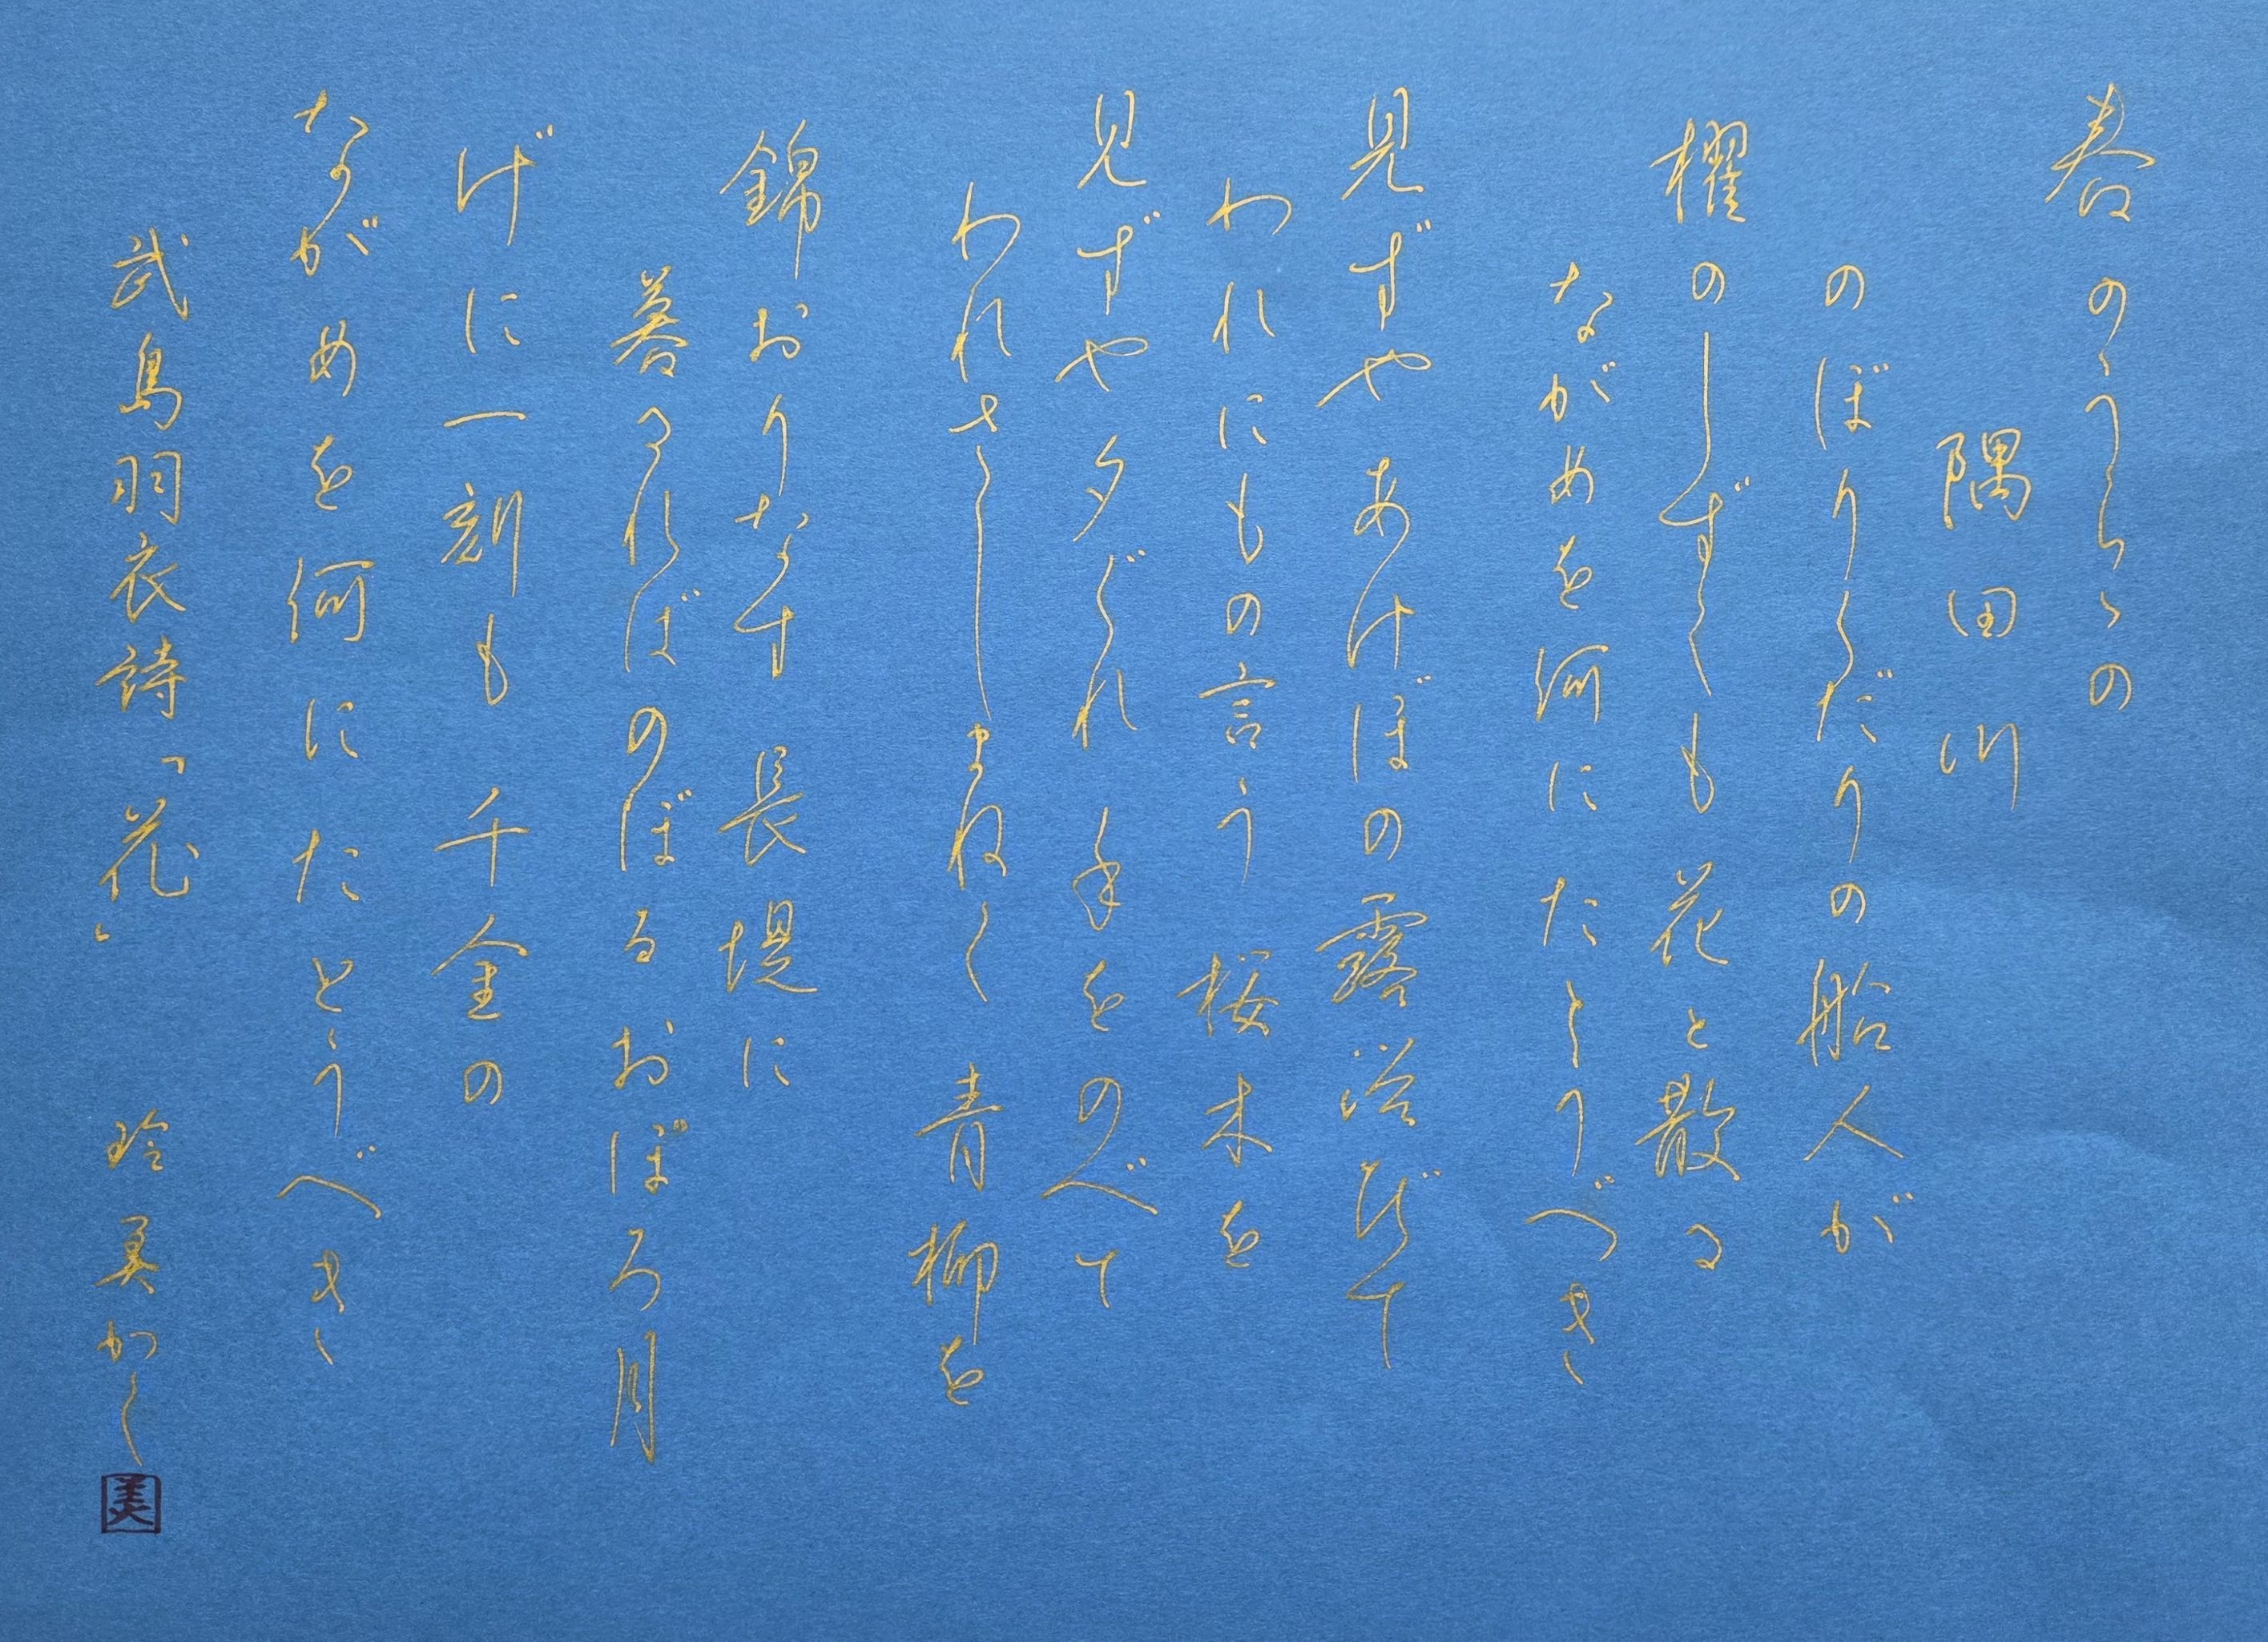 春のうらゝの
隅田川
のぼりくだりの船人が
櫂のしずくも花と散る
ながめを何にたとうべき
見ずやあけぼの露浴びて
われにもの言う桜木を
見ずや夕ぐれ手をのべて
われさしまねく青柳を
錦おりなす長堤に
暮るればのぼるおぼろ月
げに一刻も千金の
ながめを何にたとうべき
武島羽衣詩「花」
玲美かく
美